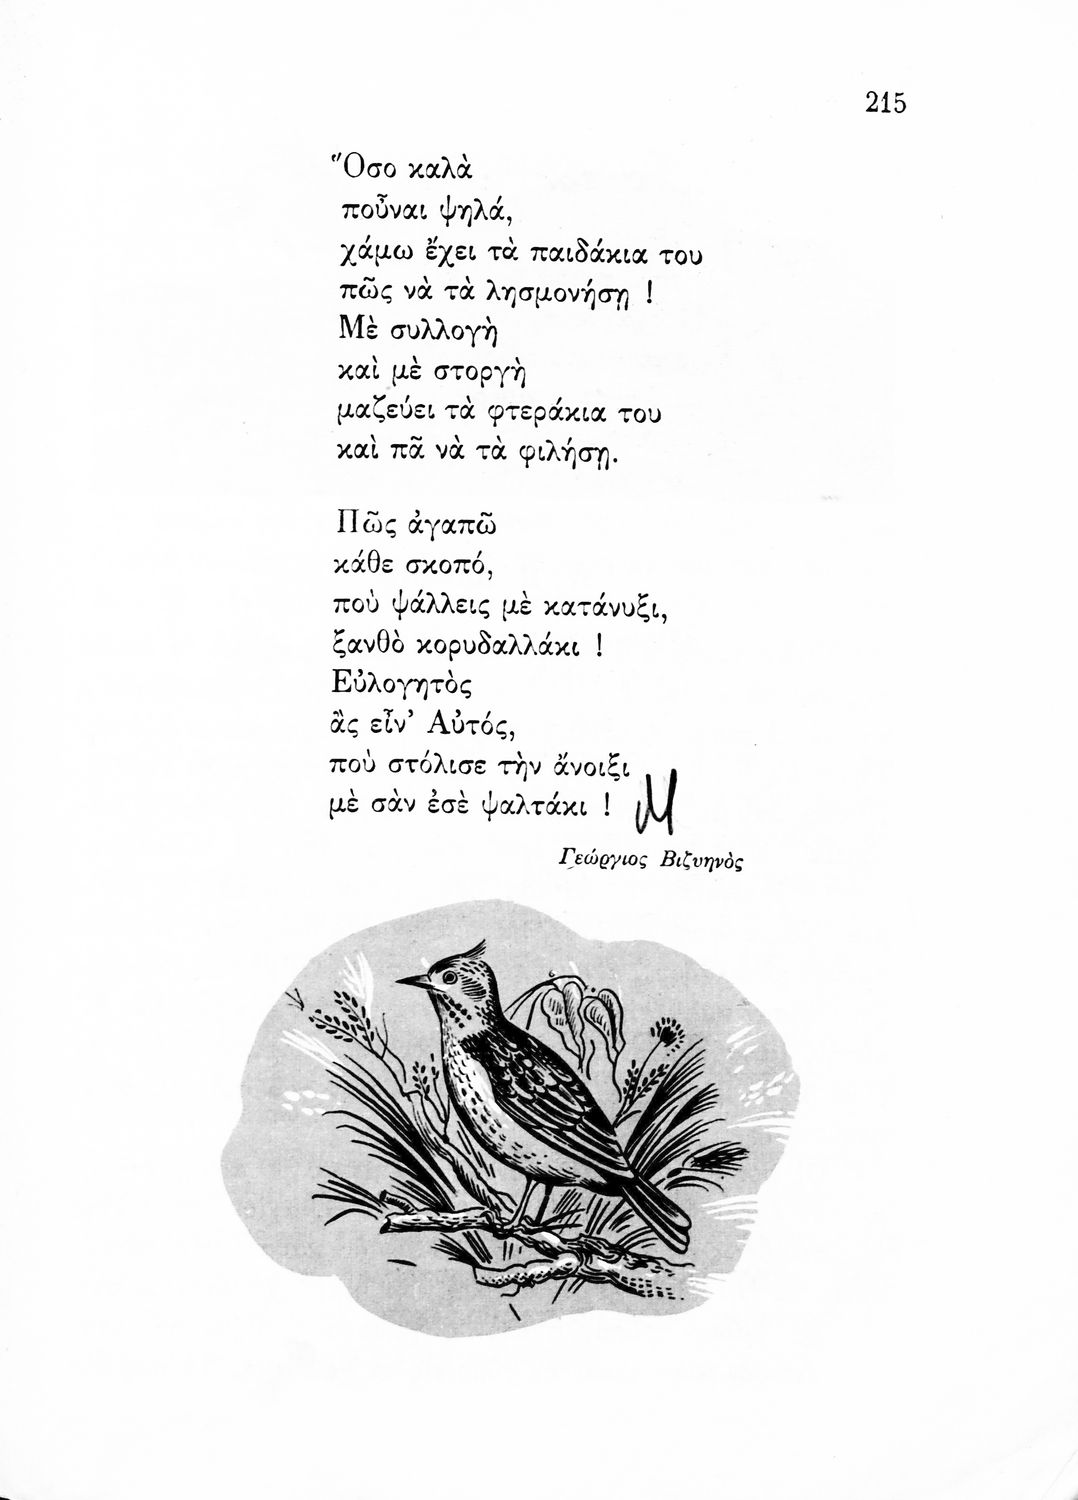 215
Ὅσο καλὰ
ποὖναι ψηλά,
χάμω ἔχει τὰ παιδάκια του
πῶς νὰ τὰ λησμονήσῃ !
Μὲ συλλογὴ
καὶ μὲ στοργὴ
μαζεύει τὰ φτεράκια του
καὶ πᾶ νὰ τὰ φιλήσῃ.
Πῶς ἀγαπῶ
κάθε σκοπό,
ποὺ ψάλλεις μὲ κατάνυξι,
ξανθὸ κορυδαλλάκι !
Εὐλογητὸς
ἂς εἶν’ Αὐτός,
ποὺ στόλισε τὴν ἄνοιξι
μὲ σὰν ἐσὲ ψαλτάκι !
Γεώργιος Βιζυηνὸς